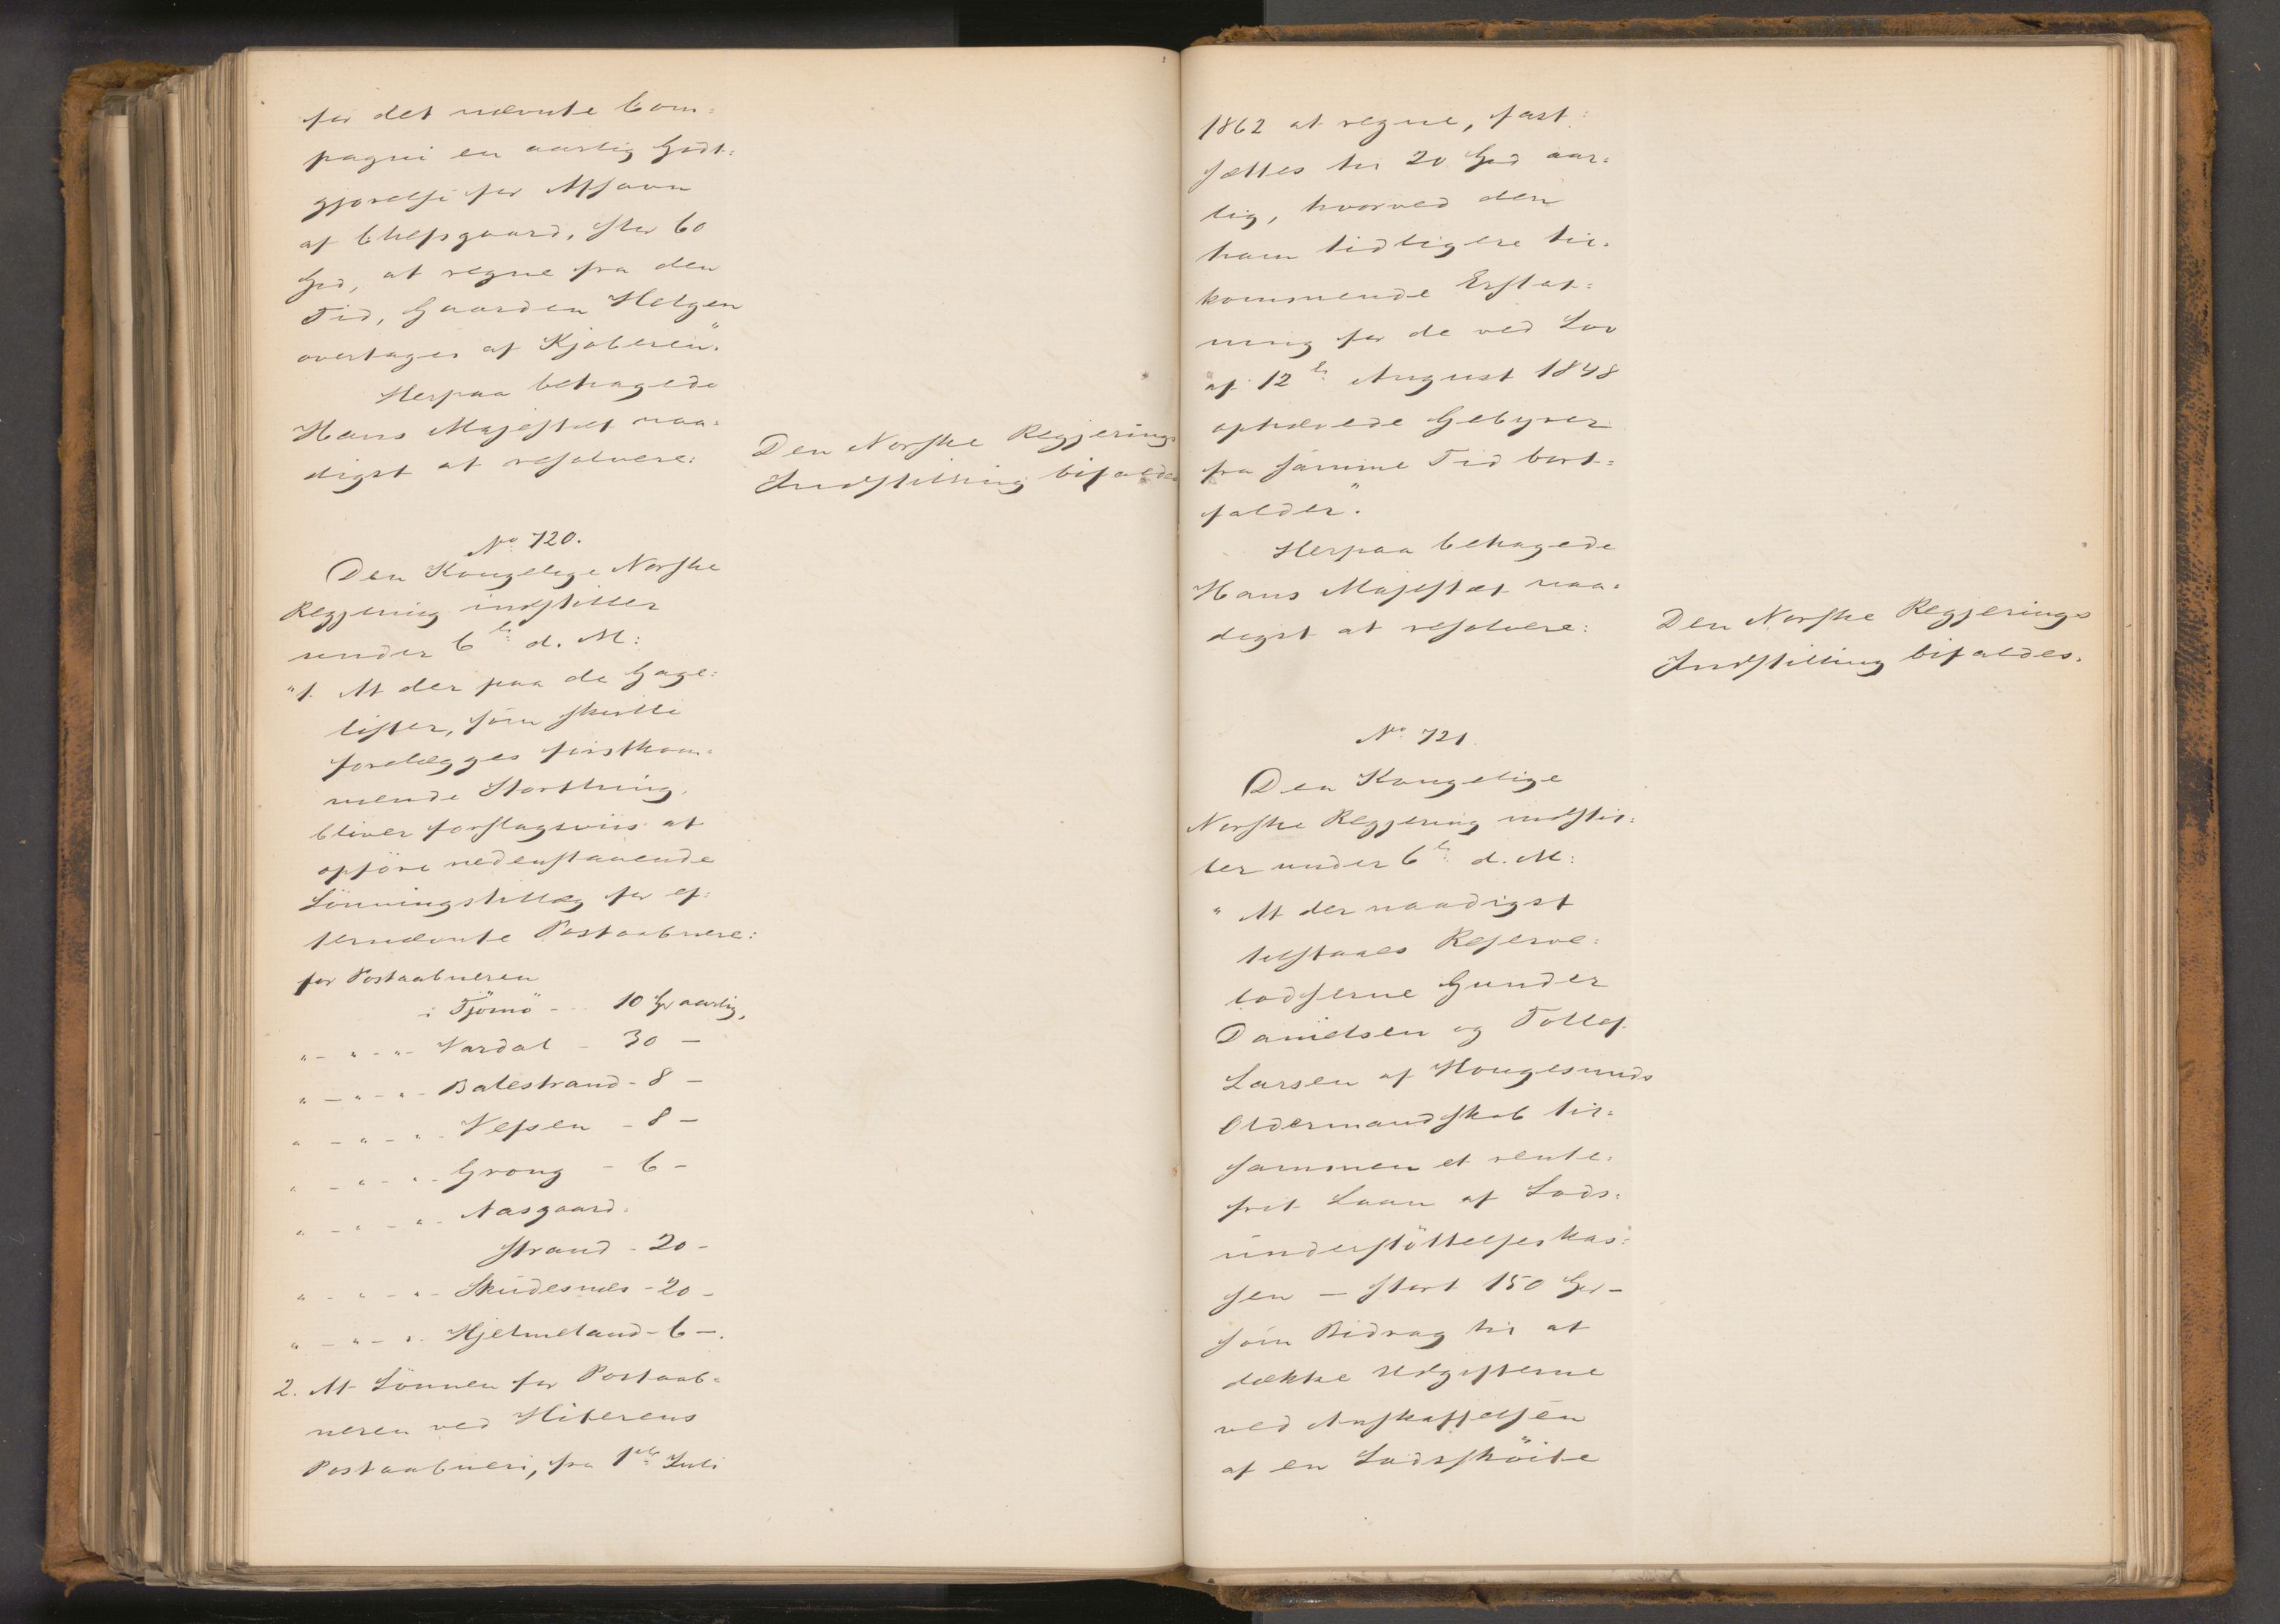 for det nævnte Com=
pagni en aarlig Godt=
gjørelse for Afsavn
af Chefsgaard, stor 60
Spd, at regne fra den
Tid, Gaarden Helgen
overtages af Kjøberen".
Herpaa behagede
Hans Majestæt naa=
digst at resolvere:
Den Norske Regjerings
Indstilling bifaldes
No 720.
Den Kongelige Norske
Regjering indstiller
under 6te d. M:
"1. At der paa de Gage=
lister, som skulle
forelægges førstkom=
mende Storthing,
bliver forslagsviis at
opföre nedenstaaende
Lönningstillæg for ef=
ternævnte Postaabnere:
for Postaabneren
i Tjömö - 10 Spd aarlig,
" - " - " - Vardal - 30 -
" - " - " - Balestrand - 8 -
" - " - " - Vefsen - 8 -
" - " - " - Grong - 6 -
" - " - " - Aasgaard=
strand - 20 -
" - " - " - Skudesnæs - 20 -
" - " - " - Hjelmeland - 6 -.
2. At Lönnen for Postaab=
neren ved Hiterens
Postaabneri, fra 1ste Juli
1862 at regne, fast=
sættes til 20 Spd aar=
lig, hvorved den
ham tidligere til=
kommende Erstat=
ning for de ved Lov
af 12te August 1848
ophævede Gebyrer
fra samme Tid bort=
falder".
Herpaa behagede
Hans Majestæt naa=
digst at resolvere:
Den Norske Regjerings
Indstilling bifaldes.
No 721.
Den Kongelige
Norske Regjering indstil=
ler under 6te d. M:
" At der naadigst
tilstaaes Reserve=
lodserne Gunder
Danielsen og Tollef
Larsen af Hougesunds
Oldermandskab til=
sammen et rente=
frit Laan af Lods=
understöttelseskas=
sen - stort 150 Spd -
som Bidrag til at
dække Udgifterne
ved Anskaffelsen
af en Lodssköite